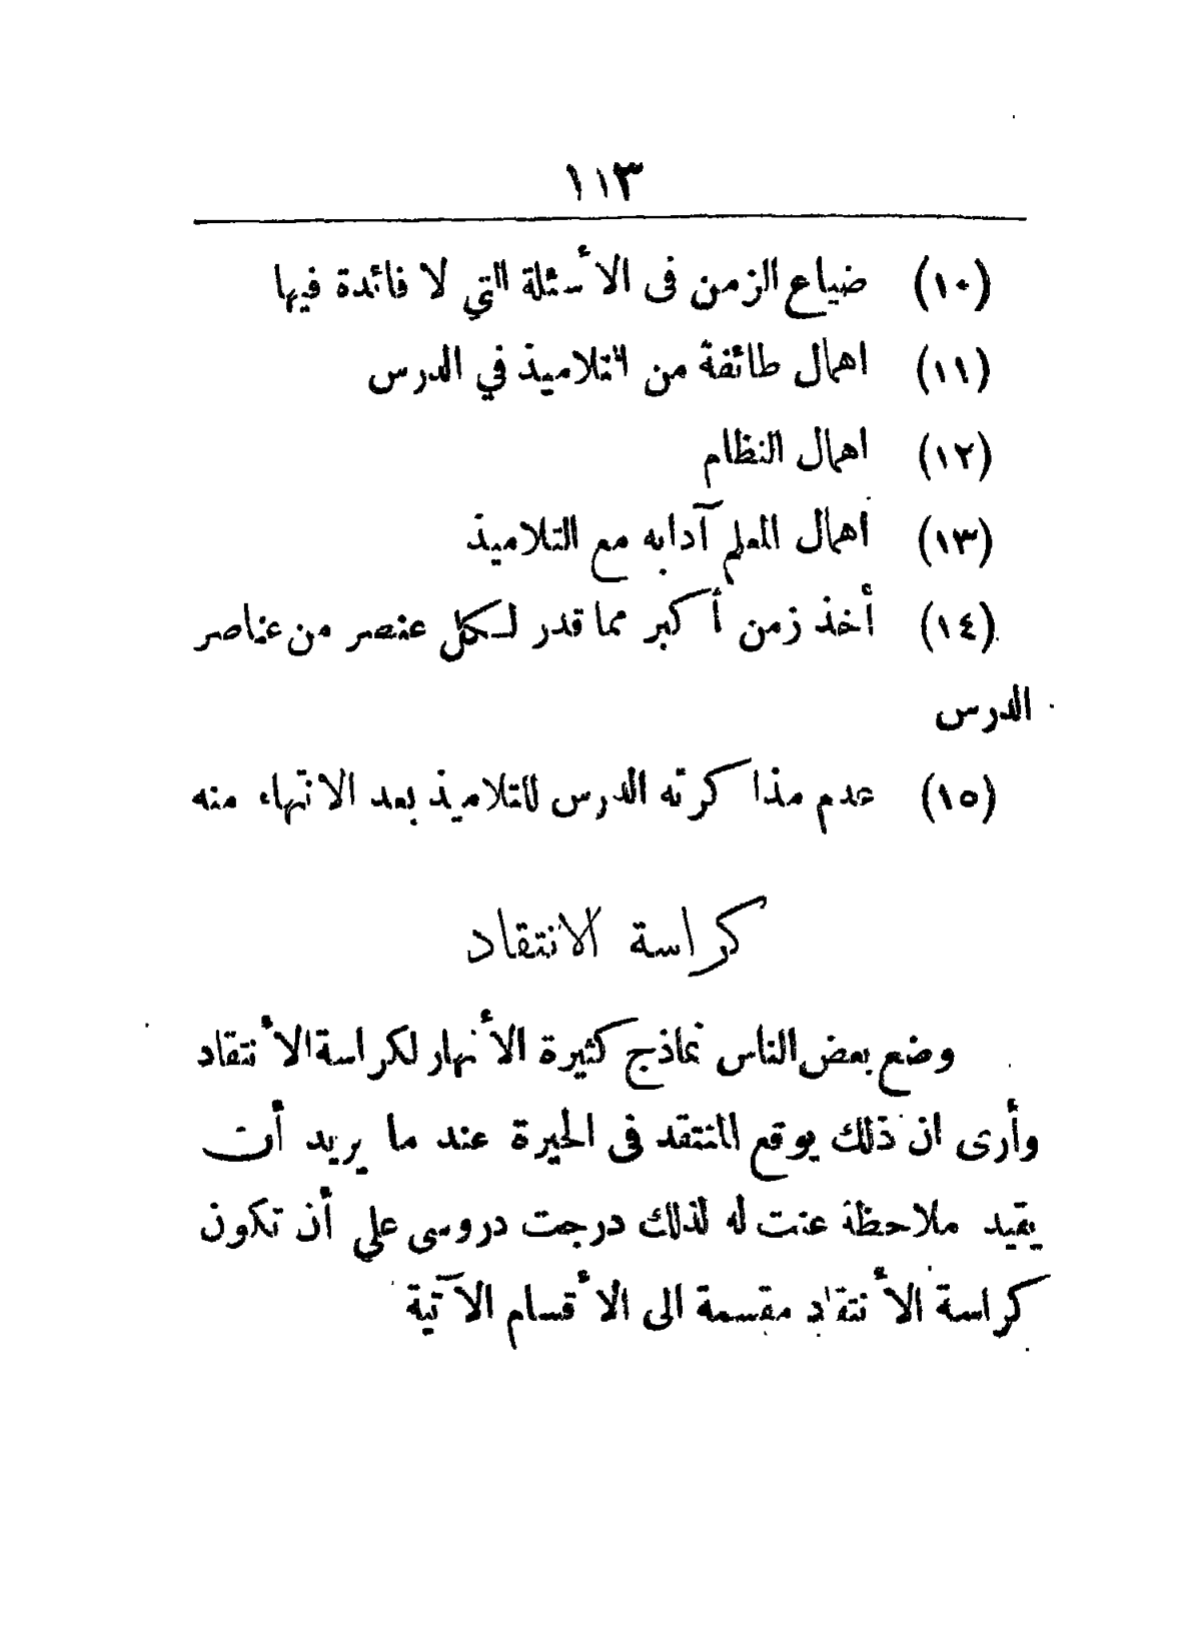 ١١٣
(١٠) ضياع الزمن فى الأسئلة التي لا فائدة فيها
(١١) اهمال طائفة من التلاميذ في الدرس
(١٢) اهمال النظام
(١٣) اهمال المعلم آدابه مع التلاميذ
(١٤) أخذ زمن أكبر مما قدر لكل عنصر من عناصر
الدرس
(١٥) عدم مذاكرته الدرس للتلاميذ بعد الانتهاء منه
كراسة الانتقاد
وضع بعض الناس نماذج كثيرة الأنهار لكراسة الأنتقاد
وأرى ان ذلك يوقع المنتقد فى الحيرة عند ما يريد أن
يقيد ملاحظة عنت له لذلك درجت دروسى علي أن تكون
كراسة الأنتقاد مقسمة الى الأقسام الآتية